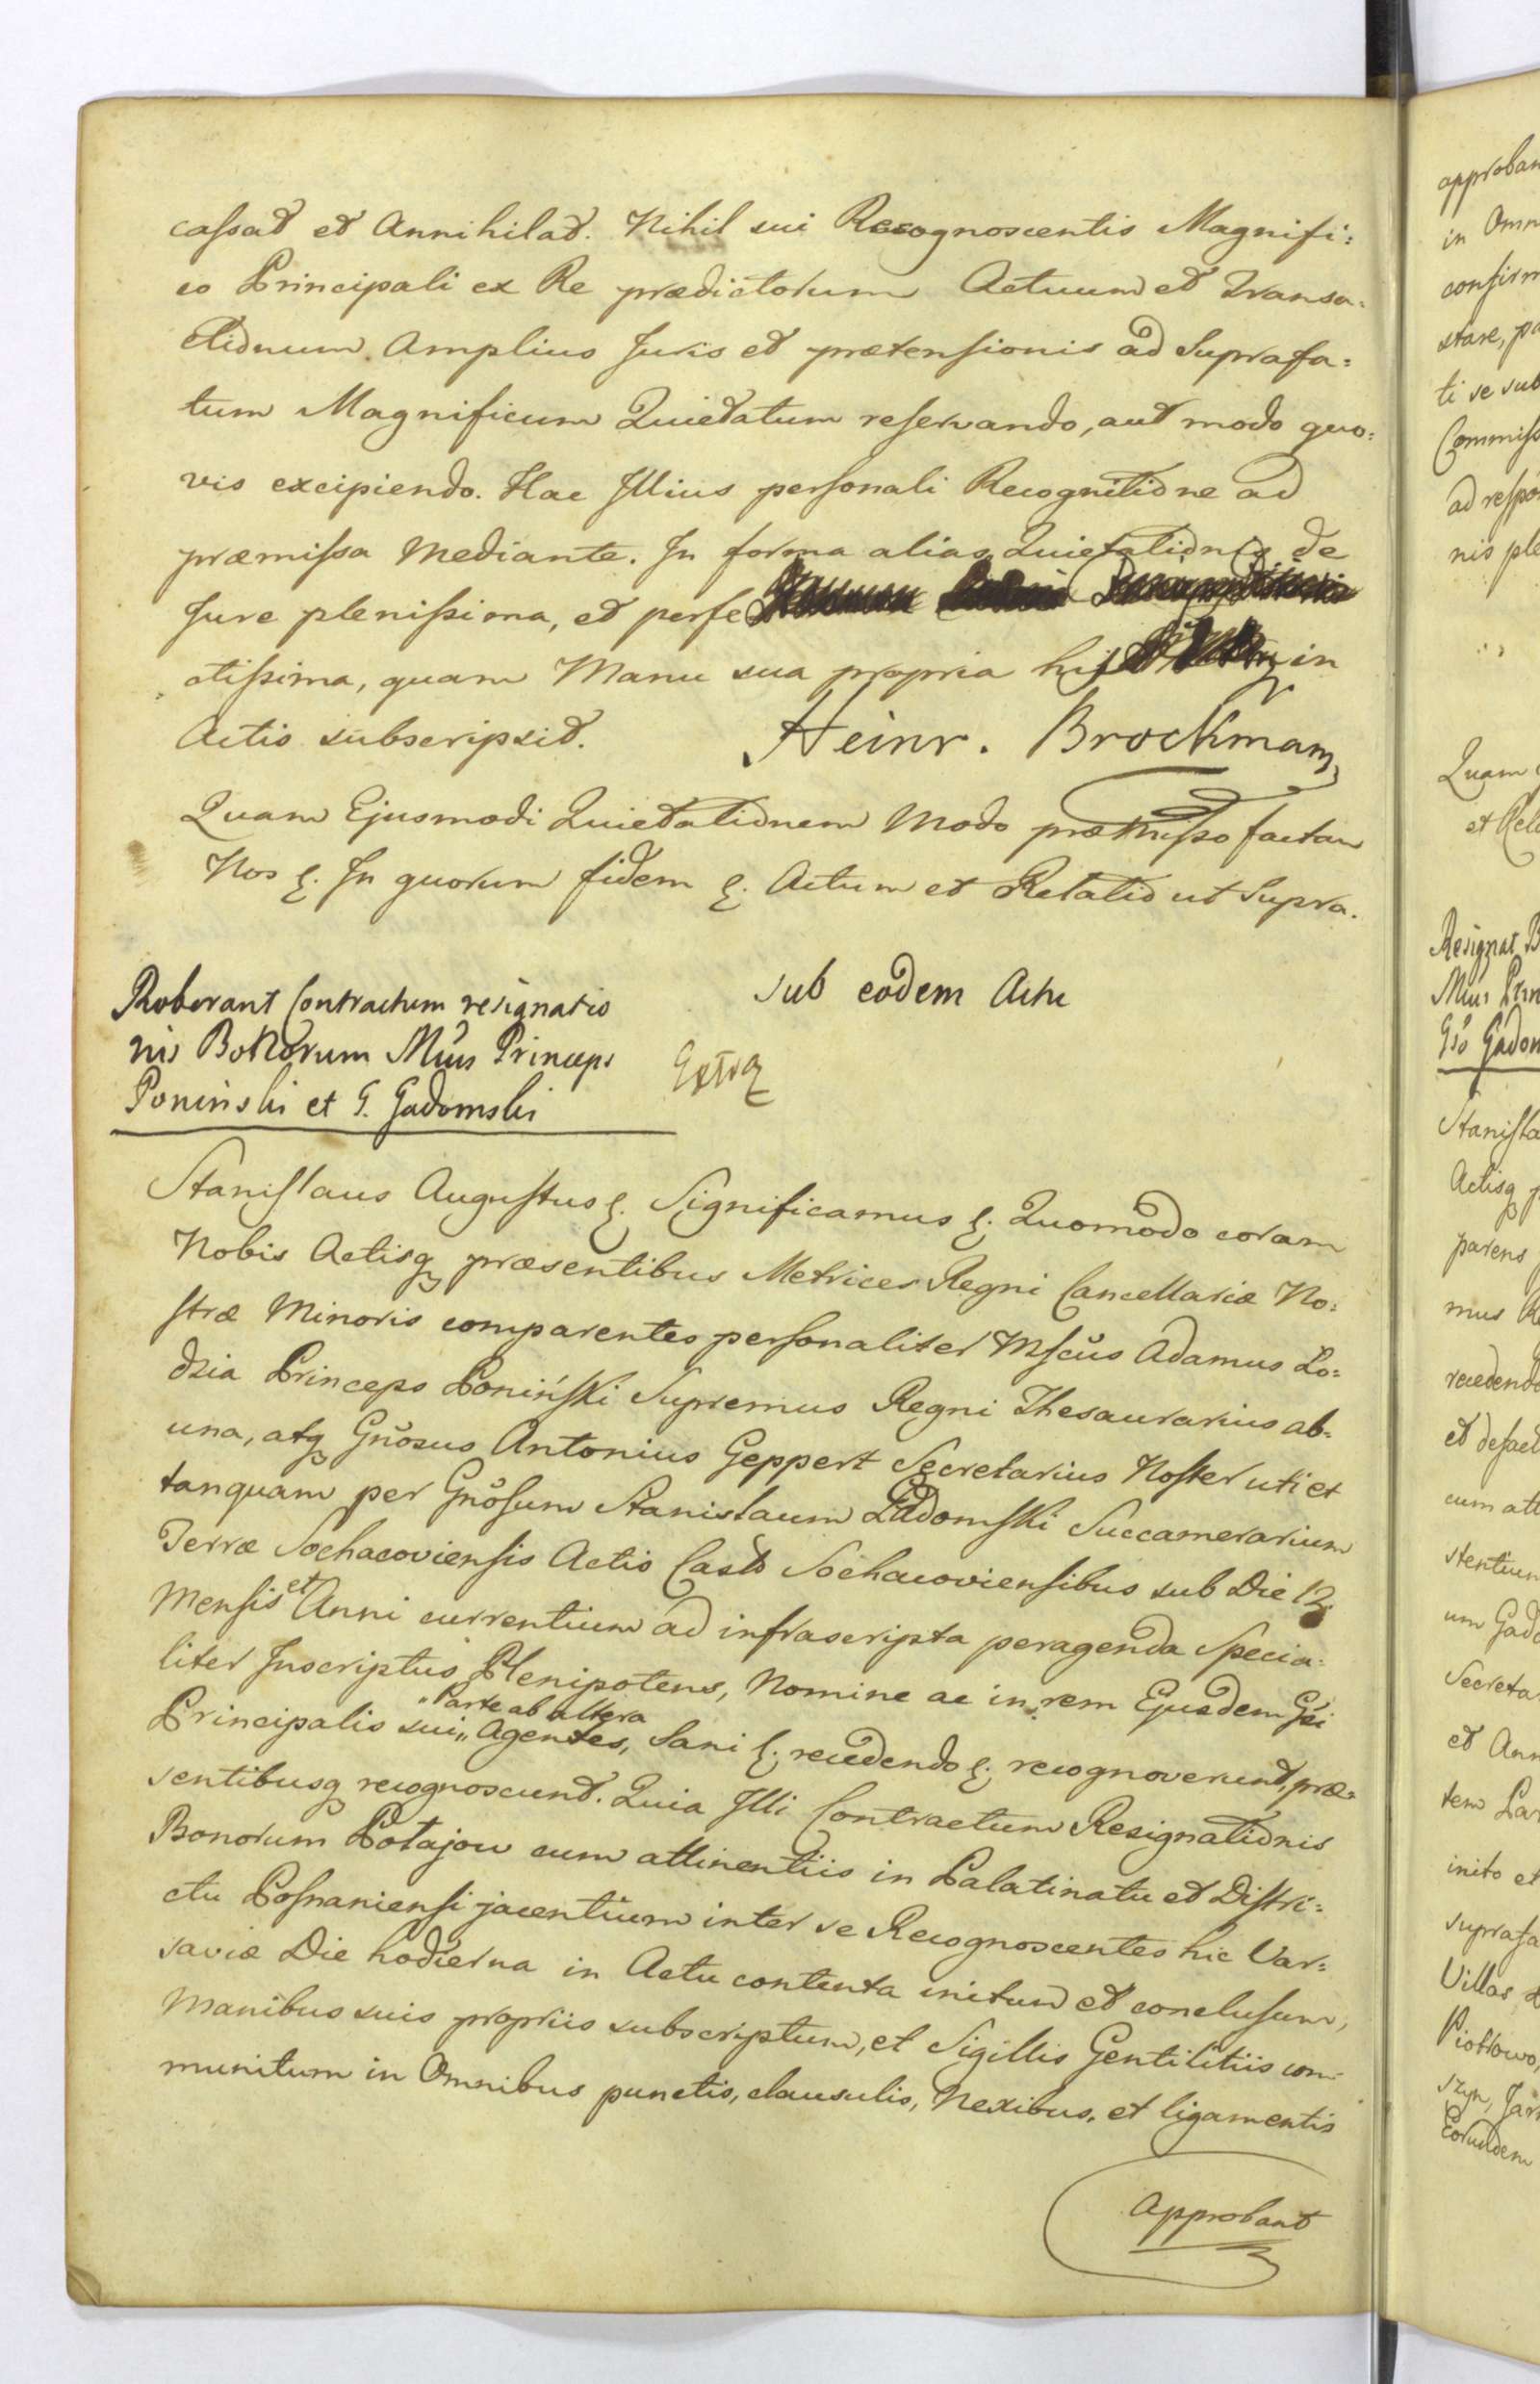 cassat et Annihilat. Nihil sui Recognoscentis Magnifi:
co Principali ex Re prædictorum Actuum et Transa:
ctionum Amplius Juris et prætensionis ad Suprafa:
tum Magnificum Quietatum reservando, aut modo quo:
vis excipiendo. Hac Illius personali Recognitione ad
præmissa Mediante. In forma alias Quietationis de
Jure plenissima, et perfe
ctissima, quam Manu sua propria hisce in
Actis subscripsit. Heinr. Brockmann
Quam Ejusmodi Quietationem Modo præmisso factam
Nos &. In quorum fidem &. Actum et Relatio ut Supra.
Sub eodem Actu
Roborant Contractum resignatio
nis Bonorum Mus Princeps
Poninski et G. Gadomski
Extra
Stanislaus Augustus &. Significamus &. Quomodo coram
Nobis Actisq præsentibus Metrices Regni Cancellariæ No:
stræ Minoris comparentes personaliter Mfcus Adamus Lo:
dzia Princeps Poniński Supremus Regni Thesaurarius ab
una, atq Gnosus Antonius Geppert Secretarius Noster uti et
tanquam per Gnosum Stanislaum Gadomski Succamerarium
Terræ Sochacoviensis Actis Castr Sochacoviensibus sub Die 12
Mensis et Anni currentium ad infrascripta peragenda Specia:
liter Inscriptus Plenipotens, Nomine ac in rem Ejusdem Gsi
Principalis sui "Parte ab altera" Agentes, Sani &. recedendo &. recognoverunt, præ:
sentibusq recognoscunt. Quia Illi Contractum Resignationis
Bonorum Potajow cum attinentiis in Palatinatu et Distri:
ctu Posnaniensi jacentium inter se Recognoscentes hic Var:
saviæ Die hodierna in Actu contenta initum et conclusum,
Manibus suis propriis subscriptum, et Sigillis Gentilitiis com
munitum in Omnibus punctis, clausulis, Nexibus, et ligamentis
Approbant
approban
in Omn
confirm
stare, pa
ti se sub
Commiss
ad respo
nis ple
Quam
et Rela
Resignat B
Mus Prin
Gso Gadom
Stanisla
Actisq p
parens
mus
recedendo
et
cum att
stentium
um Gado
Secreta
et Ann
tem Lar
inito et
suprafa
Villas
Piotrowo,
szyn, Jar
Eorundem